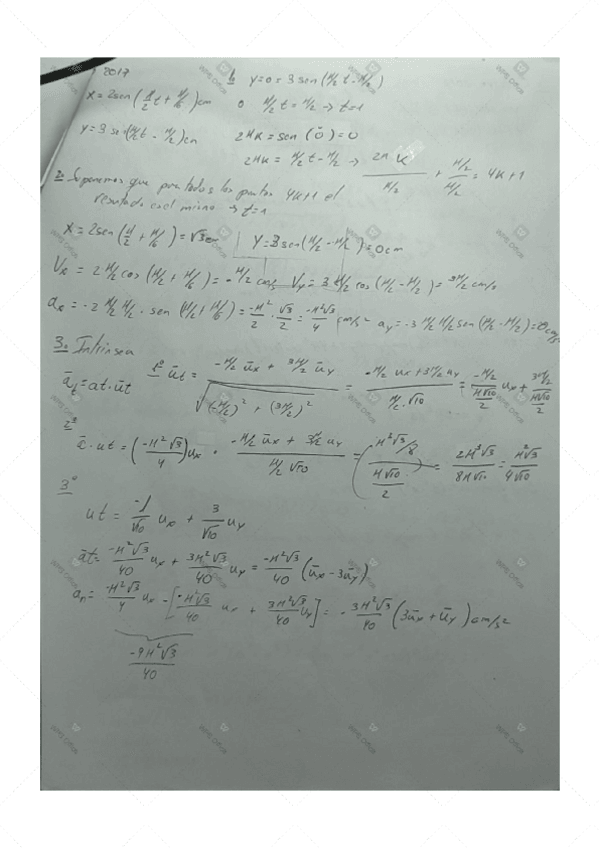 2017
1. y=0=3sen(π/2 t-π/2)
x=2sen(π/2 t+π/6)cm 0 π/2 t=π/2 → t=1
y=3 sen(π/2 t - π/2)cm 2πK=sen(0)=0
2πK=π/2 t-π/2 → 2πK/π/2 + π/2/π/2 = 4K+1
2. Suponemos que para todos los puntos 4K+1 el
resultado es el mismo → t=1
x=2sen(π/2+π/6)=√3cm y=3sen(π/2-π/2)=0cm
Vx = 2 π/2 cos(π/2+π/6)=-π/2 cm/s Vy=3 π/2 cos(π/2-π/2)=3π/2 cm/s
ax=-2 π/2 π/2 · sen(π/2+π/6)=-π²/2 · √3/2=-π²√3/4 cm/s² ay=-3 π/2 π/2 sen(π/2-π/2)=0cm/s²
3. Intrínseca
āt=at·ūt 1º ūt= -π/2 ūx + 3π/2 ūy / √((-π/2)²+(3π/2)²) = -π/2 ux+3π/2 uy / π/2·√10 = -π/2 / π√10/2 ux + 3π/2 / π√10/2
2º
ā·ut=(-π²√3/4)ux · -π/2 ūx + 3π/2 uy / π/2 √10 = π³√3/8 / π√10/2 = 2π³√3/8π√10 = π²√3/4√10
3º
ut = -1/√10 ux + 3/√10 uy
āt= -π²√3/40 ux + 3π²√3/40 uy = -π²√3/40 (ūx - 3ūy)
an= -π²√3/4 ux - [-π²√3/40 ux + 3π²√3/40 uy] = - 3π²√3/40 (3ūx + ūy) cm/s²
-9π²√3/40